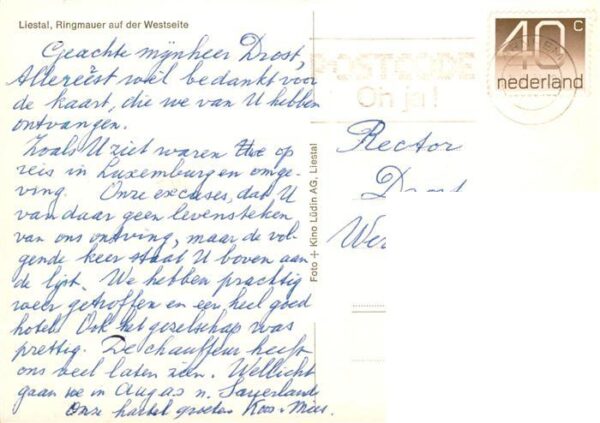 Liestal, Ringmauer auf der Westseite
Geachte mijnheer Drost,
Allereerst wel bedankt voor
de kaart, die we van U hebben
ontvangen.
Zoals U ziet waren we op
reis in Luxemburg en omge-
ving. Onze excuses, dat U
van daar geen levensteken
van ons ontving, maar de vol-
gende keer staat U boven aan
de lijst. We hebben prachtig
weer getroffen en een heel goed
hotel. Ook het gezelschap was
prettig. De chauffeur heeft
ons veel laten zien. Wellicht
gaan we in Aug. n. Sauerland
Onze hartel. groeten Koos + Mies.
Foto + Kino Lüdin AG, Liestal
POSTCODE
Oh ja!
40 c
nederland
Rector
Drost
Wer